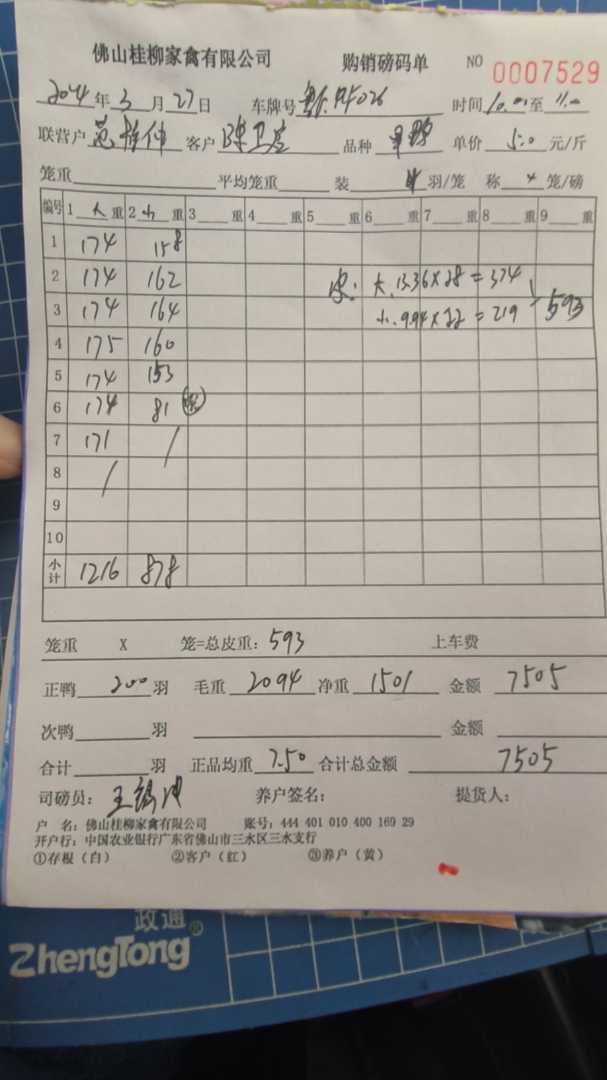 佛山桂柳家禽有限公司 购销磅码单 NO 0007529
2024年3月27日 车牌号 时间10.00至11.00
联营户 客户 陈卫 品种 单价 5.0 元/斤
笼重 平均笼重 装 4 羽/笼 称 4 笼/磅
编号 1 大 重 2 小 重 3 重 4 重 5 重 6 重 7 重 8 重 9 重
1 174 158
2 174 162 皮: 大.13.36×28=374
3 174 164 小.9.94×22=219 593
4 175 160
5 174 153
6 174 81
7 171 /
8 /
9
10
小计 1216 878
笼重 X 笼=总皮重: 593 上车费
正鸭 200 羽 毛重 2094 净重 1501 金额 7505
次鸭 羽 金额
合计 羽 正品均重 7.50 合计总金额 7505
司磅员: 王 养户签名: 提货人:
户 名: 佛山桂柳家禽有限公司 账号: 444 401 010 400 169 29
开户行: 中国农业银行广东省佛山市三水区三水支行
①存根（白） ②客户（红） ③养户（黄）
政通®
ZhengTong